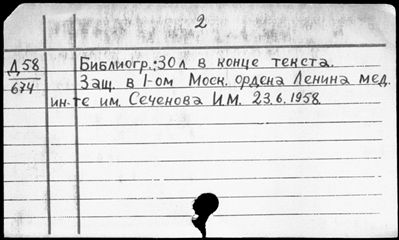 2
Д58
674
Библиогр.: 30 л. в конце текста.
Защ. в I-ом Моск. ордена Ленина мед.
ин-те им. Сеченова И.М. 23.6.1958.